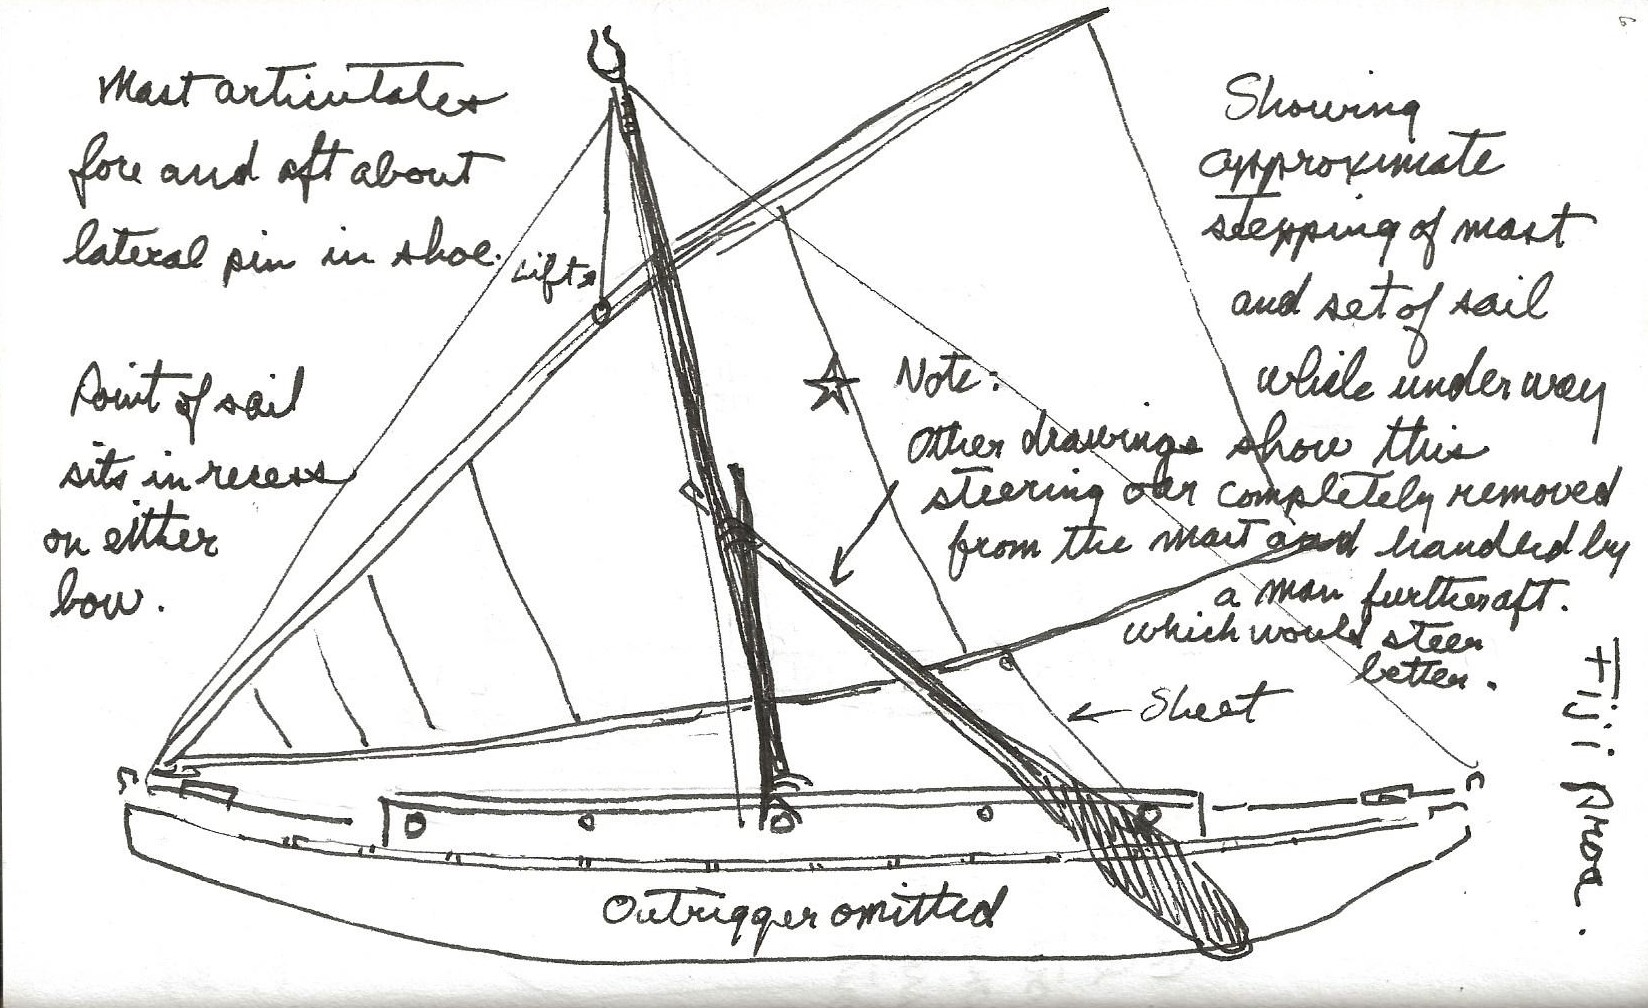 Mast articulates
fore and aft about
lateral pin in shoe.
Lifts
Point of sail
sits in recess
on either
bow.
Showing
approximate
stepping of mast
and set of sail
while under way
Note:
Other drawings show this
steering oar completely removed
from the mast and handled by
a man further aft.
which would steer
better.
← Sheet
Outrigger omitted
Fiji Proa.